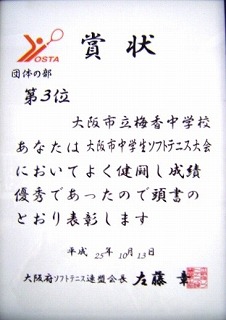 OSTA
賞状
団体の部
第3位
大阪市立梅香中学校
あなたは大阪市中学生ソフトテニス大会
においてよく健闘し成績
優秀であったので頭書の
とおり表彰します
平成 25年 10月 13日
大阪府ソフトテニス連盟会長 左藤 章